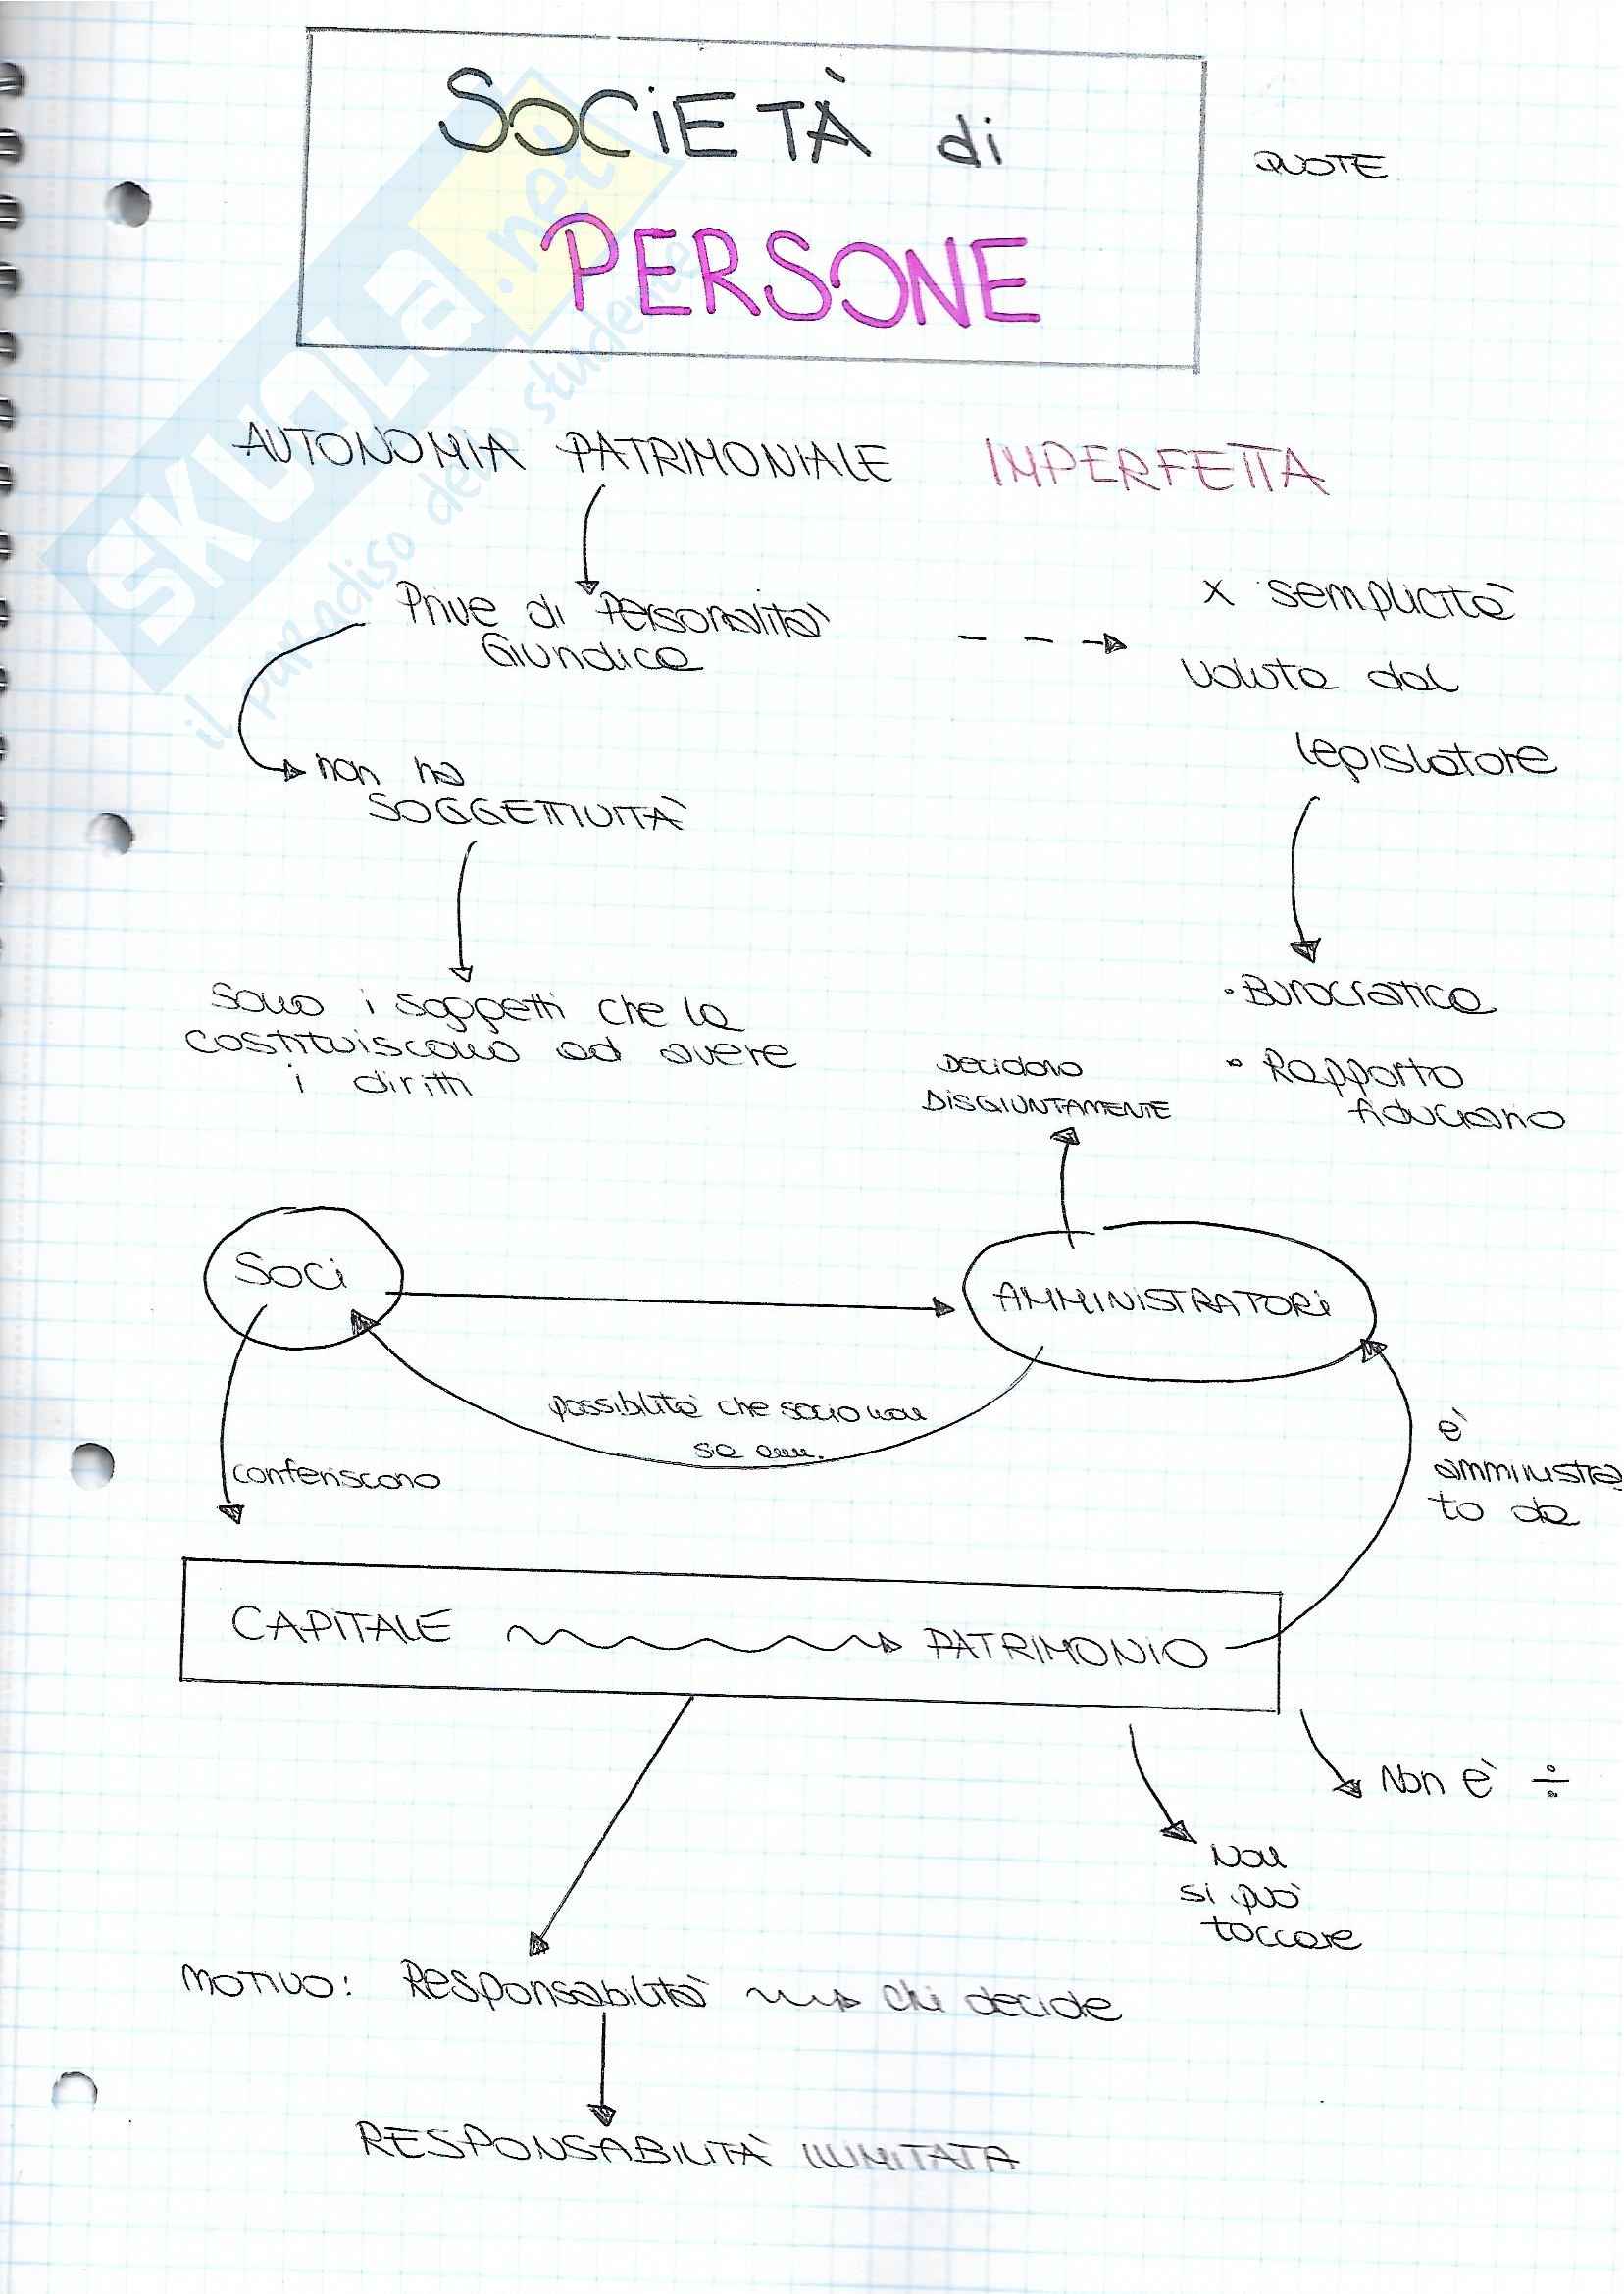 SOCIETÀ di
QUOTE
PERSONE
AUTONOMIA PATRIMONIALE IMPERFETTA
Prive di Personalità
Giuridica
x semplicità
voluta dal
legislatore
non ha
SOGGETTIVITÀ
Sono i soggetti che la
costituiscono ad avere
i diritti
• Burocratica
• Rapporto
fiduciario
Decidono
DISGIUNTAMENTE
SOCi
AMMINISTRATORi
possibilità che socio non
sia amm.
conferiscono
è
amministra
to da
CAPITALE PATRIMONIO
Non è ÷
Non
si può
toccare
MOTIVO: Responsabilità chi decide
RESPONSABILITÀ ILLIMITATA
SKUOLA.net
il paradiso dello studente